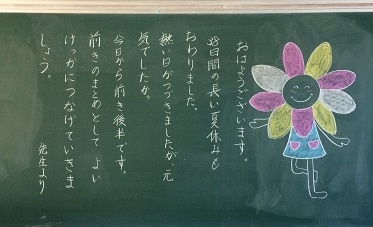 おはようございます。
38日間の長い夏休みも
おわりました。
熱い日がつづきましたが、元
気でしたか。
今日から前き後半です。
前きのまとめとして、よい
けっかにつなげていきま
しょう。
先生より